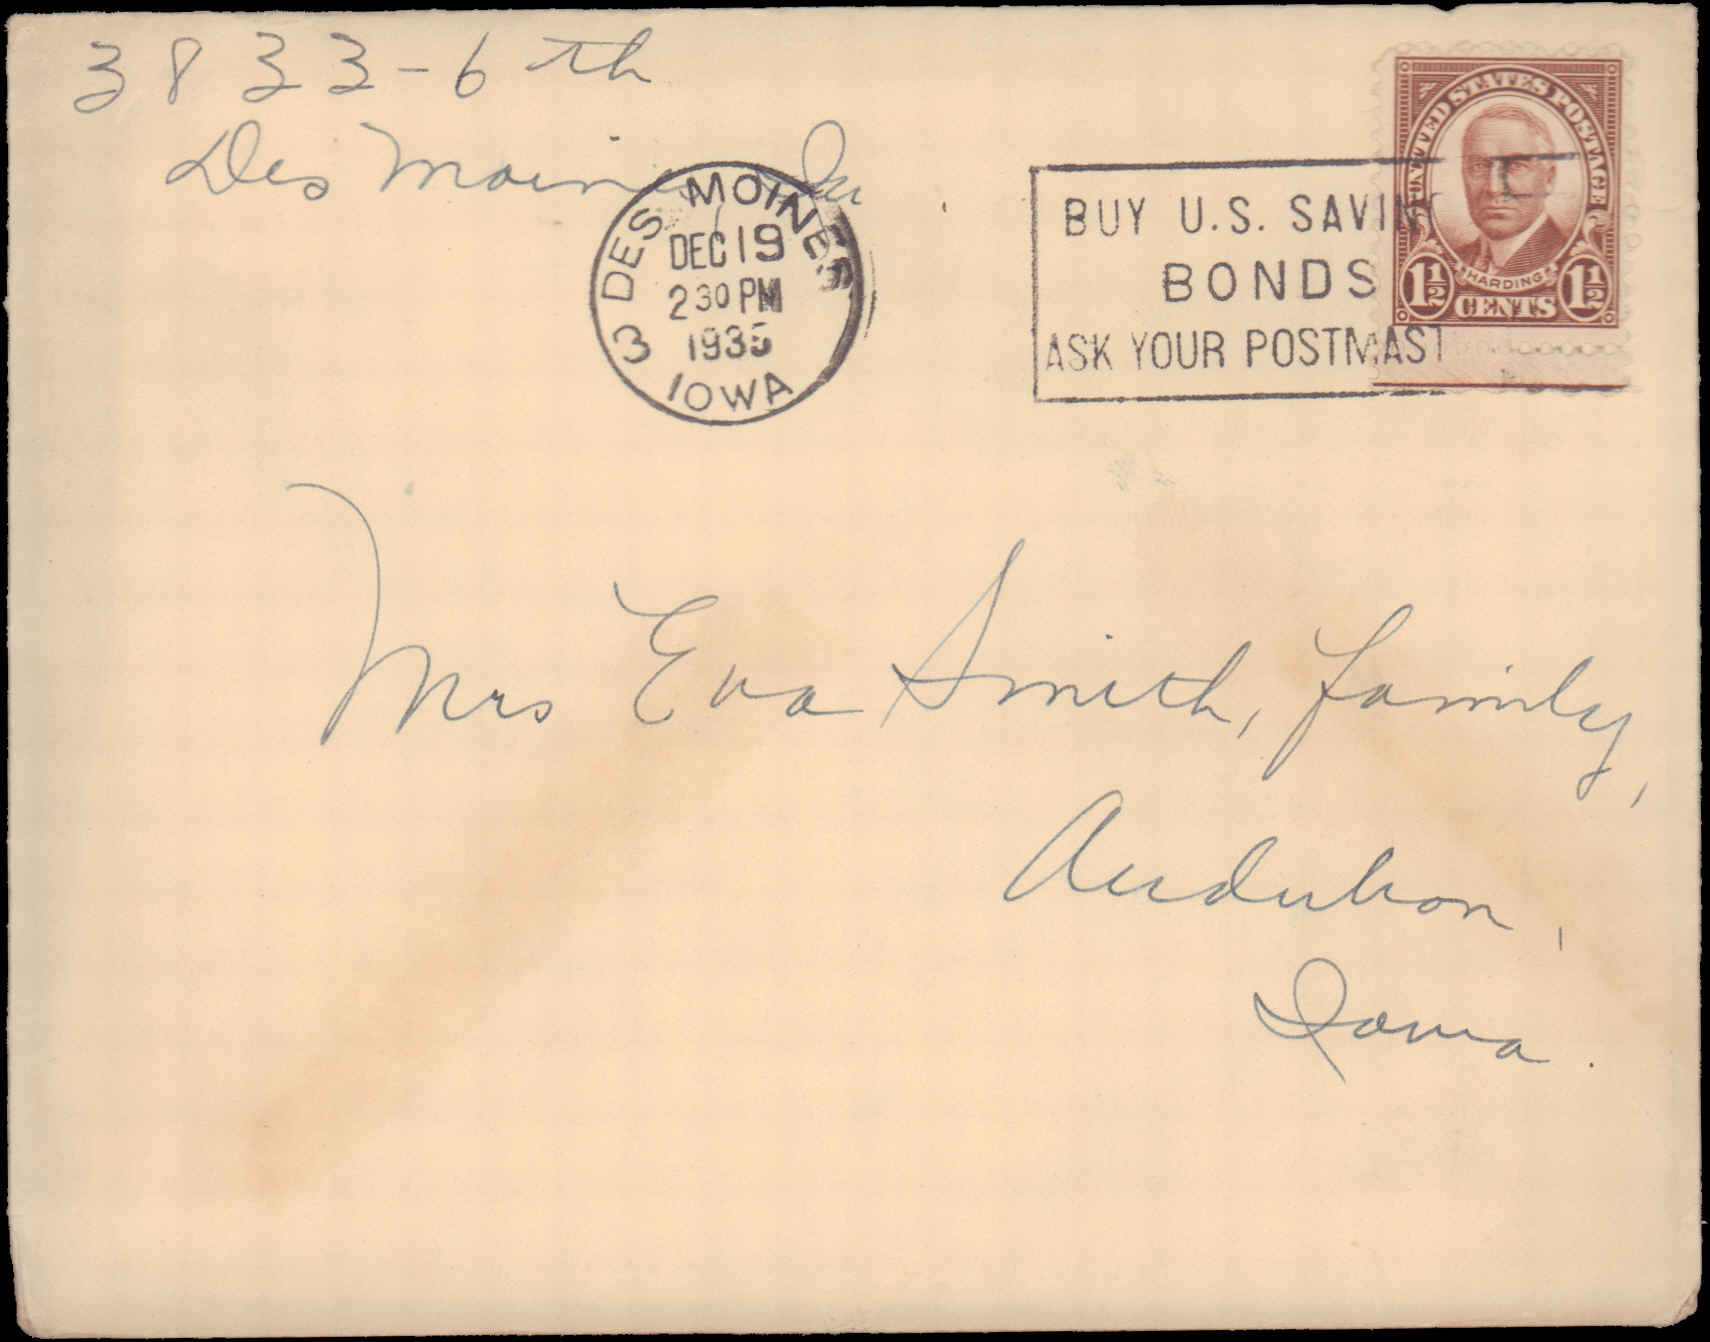 3833-6th
Des Moines Ia.
DES MOINES
DEC 19
2 30 PM
1935
3
IOWA
BUY U.S. SAVIN
BONDS
ASK YOUR POSTMAST
UNITED STATES POSTAGE
HARDING
1½ CENTS 1½
Mrs Eva Smith, family,
Audubon,
Iowa.